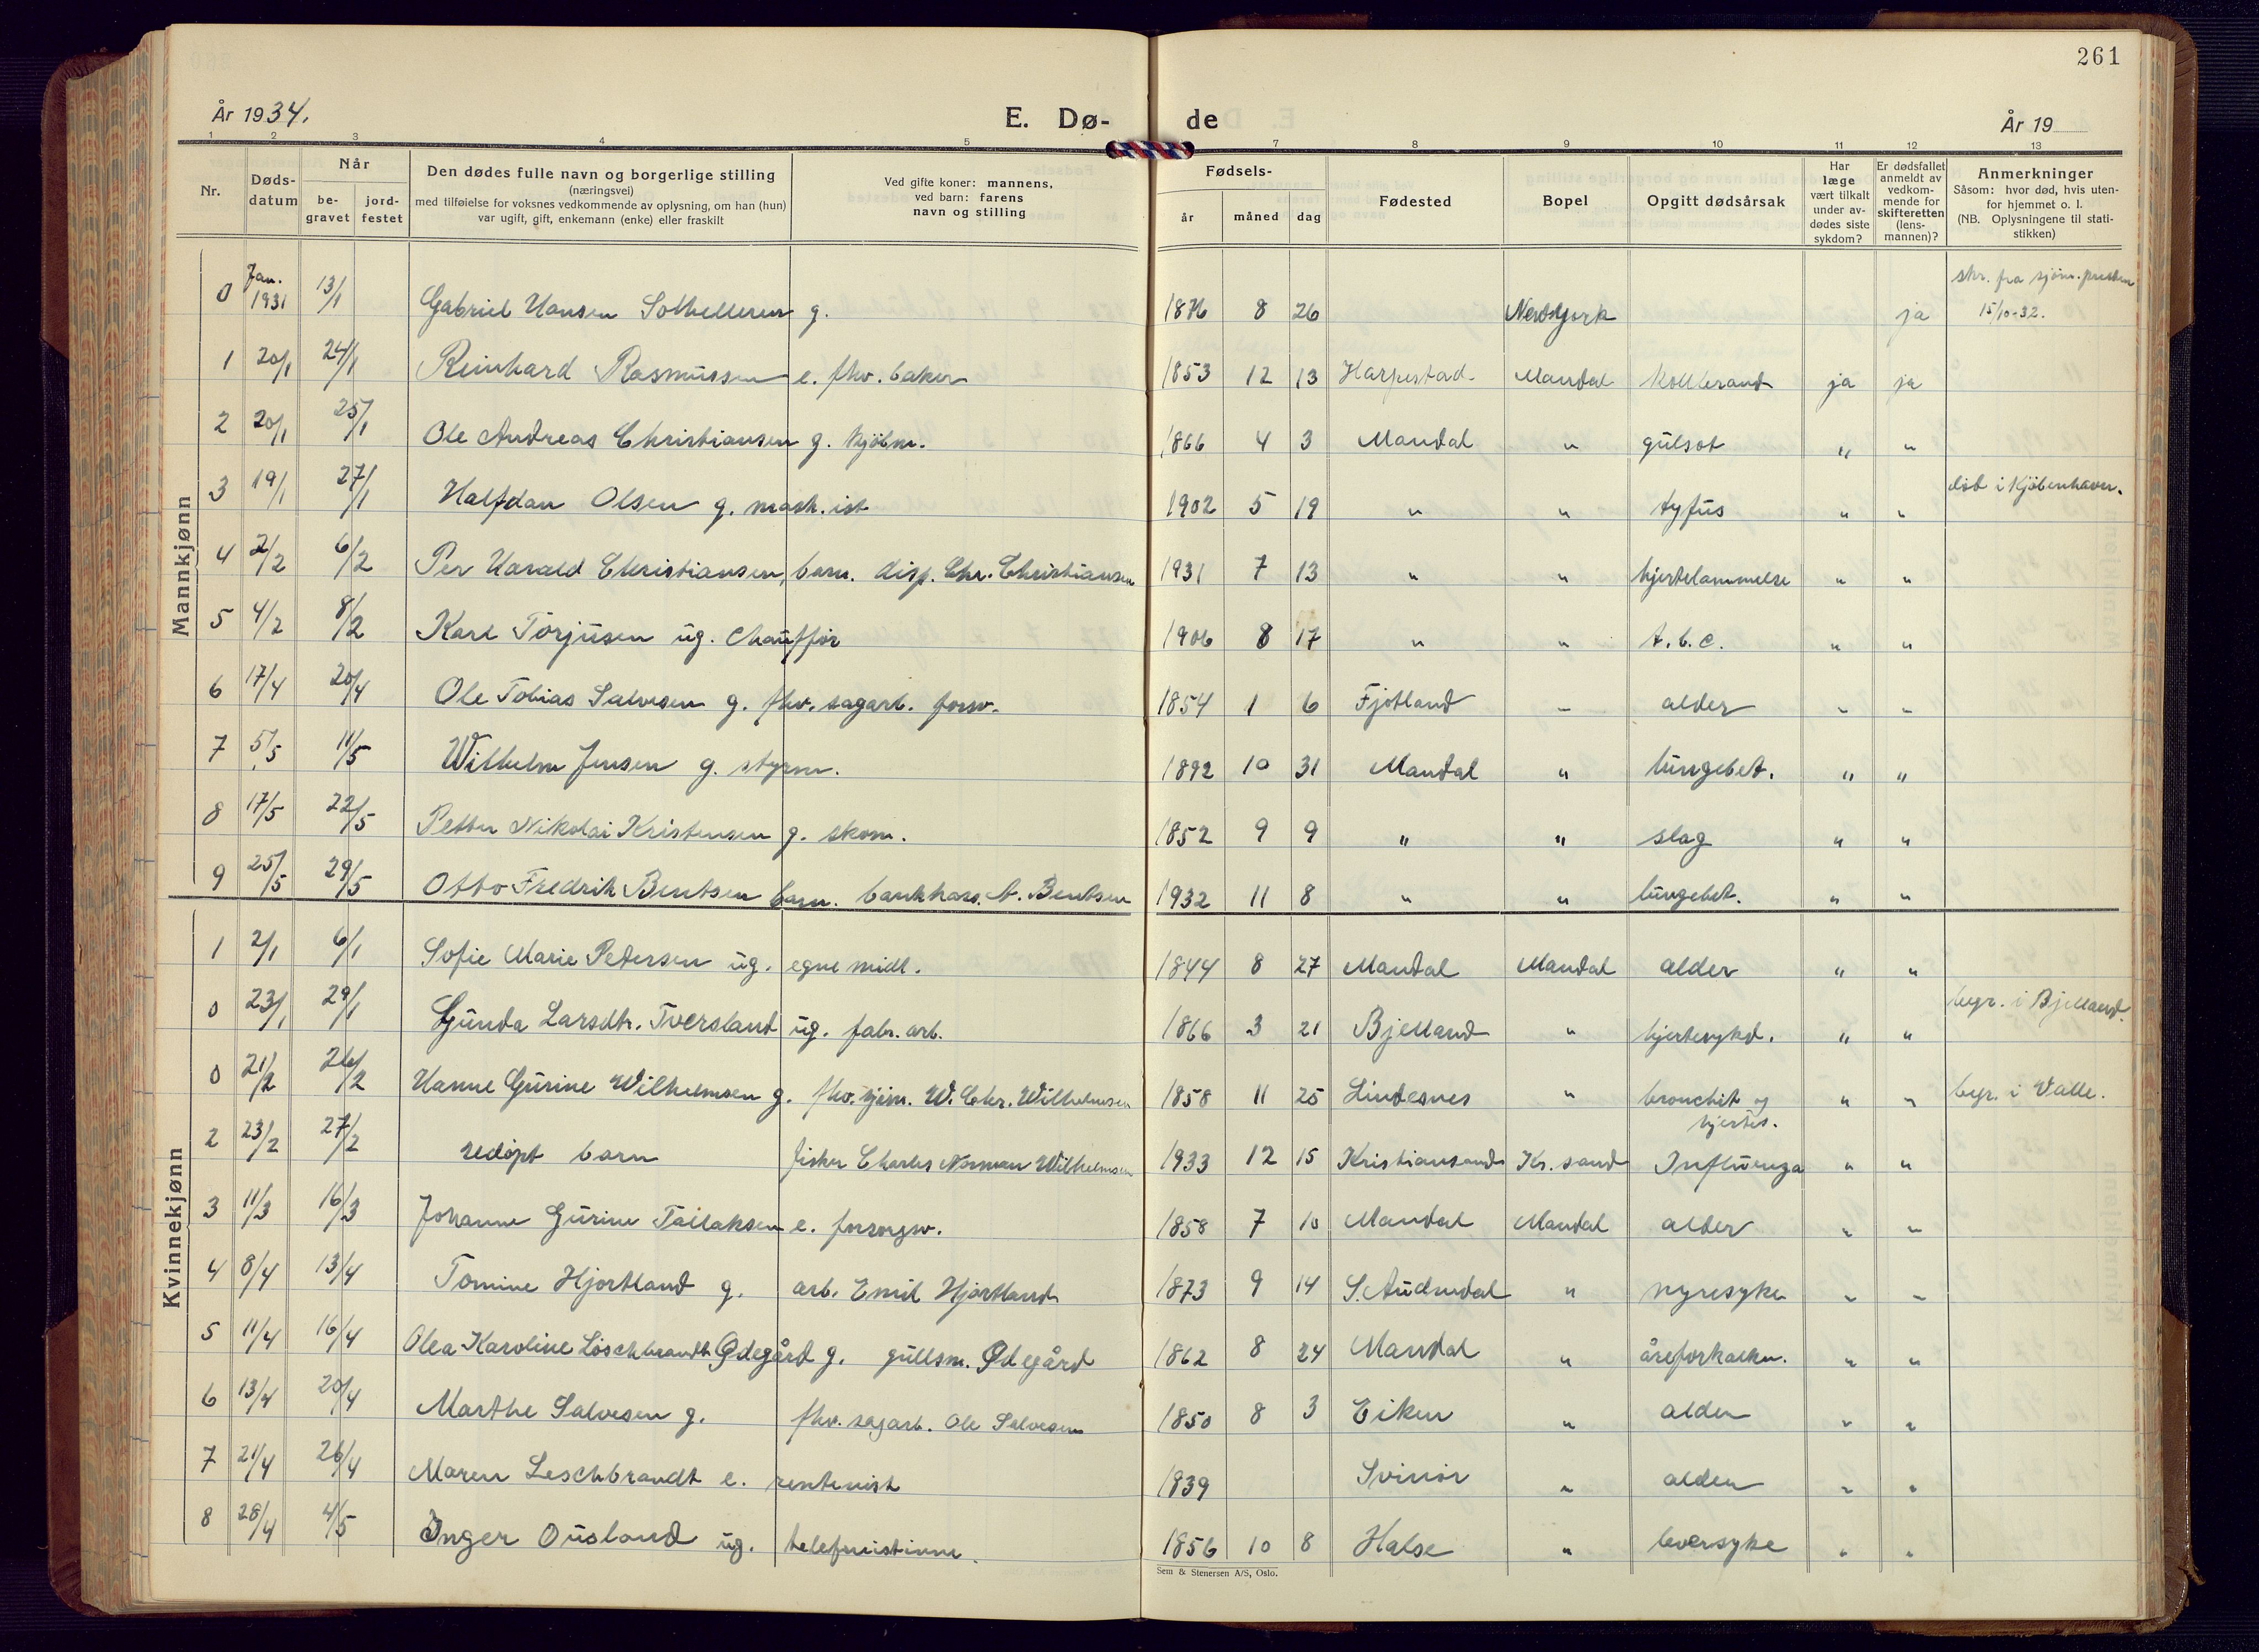 261
År 1934. E. Dø- de År 19
1 2 3 4 5 7 8 9 10 11 12 13
Nr. Døds-datum Når be-gravet jord-festet Den dødes fulle navn og borgerlige stilling (næringsvei) med tilføielse for voksnes vedkommende av oplysning, om han (hun) var ugift, gift, enkemann (enke) eller fraskilt Ved gifte koner: mannens, ved barn: farens navn og stilling Fødsels- år måned dag Fødested Bopel Opgitt dødsårsak Har læge vært tilkalt under av-dødes siste sykdom? Er dødsfallet anmeldt av vedkom-mende for skifteretten (lens-mannen)? Anmerkninger Såsom: hvor død, hvis uten-for hjemmet o. l. (NB. Oplysningene til stati-stikken)
Mannkjønn
0 Jan. 1931 13/1 Gabriel Hansen g. 1876 8 26 ja skr. fra sjøm. presten 15/10-32.
1 20/1 24/1 Reinhard Rasmussen e. fhv. baker 1853 12 13 Harpestad Mandal koldbrand ja ja
2 20/1 25/1 Ole Andreas Christiansen g. kjøbm. 1866 4 3 Mandal " gulsot " "
3 19/1 27/1 Halfdan Olsen g. mask.ist 1902 5 19 " " tyfus " " død i Kjøbenhavn.
4 2/2 6/2 Per Harald Christiansen, barn. disp. Chr. Christiansen 1931 7 13 " " hjertelammelse " "
5 4/2 8/2 Karl Torjusen ug. chauffør 1906 8 17 " " t.b.c. " "
6 17/4 20/4 Ole Tobias Salvesen g. fhv. sagarb. forsv. 1854 1 6 Fjotland " alder " "
7 5/5 11/5 Wilhelm Jensen g. styrm. 1892 10 31 Mandal " lungebet. " "
8 17/5 22/5 Petter Nikolai Kristensen g. skom. 1852 9 9 " " slag " "
9 25/5 29/5 Otto Fredrik Bentsen barn. bankkass. A. Bentsen 1932 11 8 " " lungebet. " "
Kvinnekjønn
1 2/1 6/1 Sofie Marie Petersen ug. egne midl. 1844 8 27 Mandal Mandal alder " "
0 23/1 29/1 Gunda Larsdtr. Tversland ug. fabr. arb. 1866 3 21 Bjelland " hjertesykd. " " begr. i Bjelland.
0 21/2 26/2 Hanne Gurine Wilhelmsen g. fhv. sjøm. W. Chr. Wilhelmsen 1858 11 25 Lindesnes " bronchit og hjertes. " " begr. i Valle.
2 23/2 27/2 udøpt barn fisker Charles Norman Wilhelmsen 1933 12 15 Kristiansand Kr. sand Influenza " "
3 11/3 16/3 Johanne Gurine Tallaksen e. forsorgsv. 1858 7 10 Mandal Mandal alder " "
4 8/4 13/4 Tomine Hjortland g. arb. Emil Hjortland 1873 9 14 S. Audnedal " nyresyke " "
5 11/4 16/4 Olea Karoline Löschbrandt Ødegård g. gullsm. Ødegård 1862 8 24 Mandal " åreforkalkn. " "
6 13/4 20/4 Marthe Salvesen g. fhv. sagarb. Ole Salvesen 1850 8 3 Eiken " alder " "
7 21/4 26/4 Maren Leschbrandt e. rentenist 1839 Svinør " alder " "
8 28/4 4/5 Inger Ousland ug. telefonistinne. 1856 10 8 Halse " leversyke " "
Sem & Stenersen A/S, Oslo.